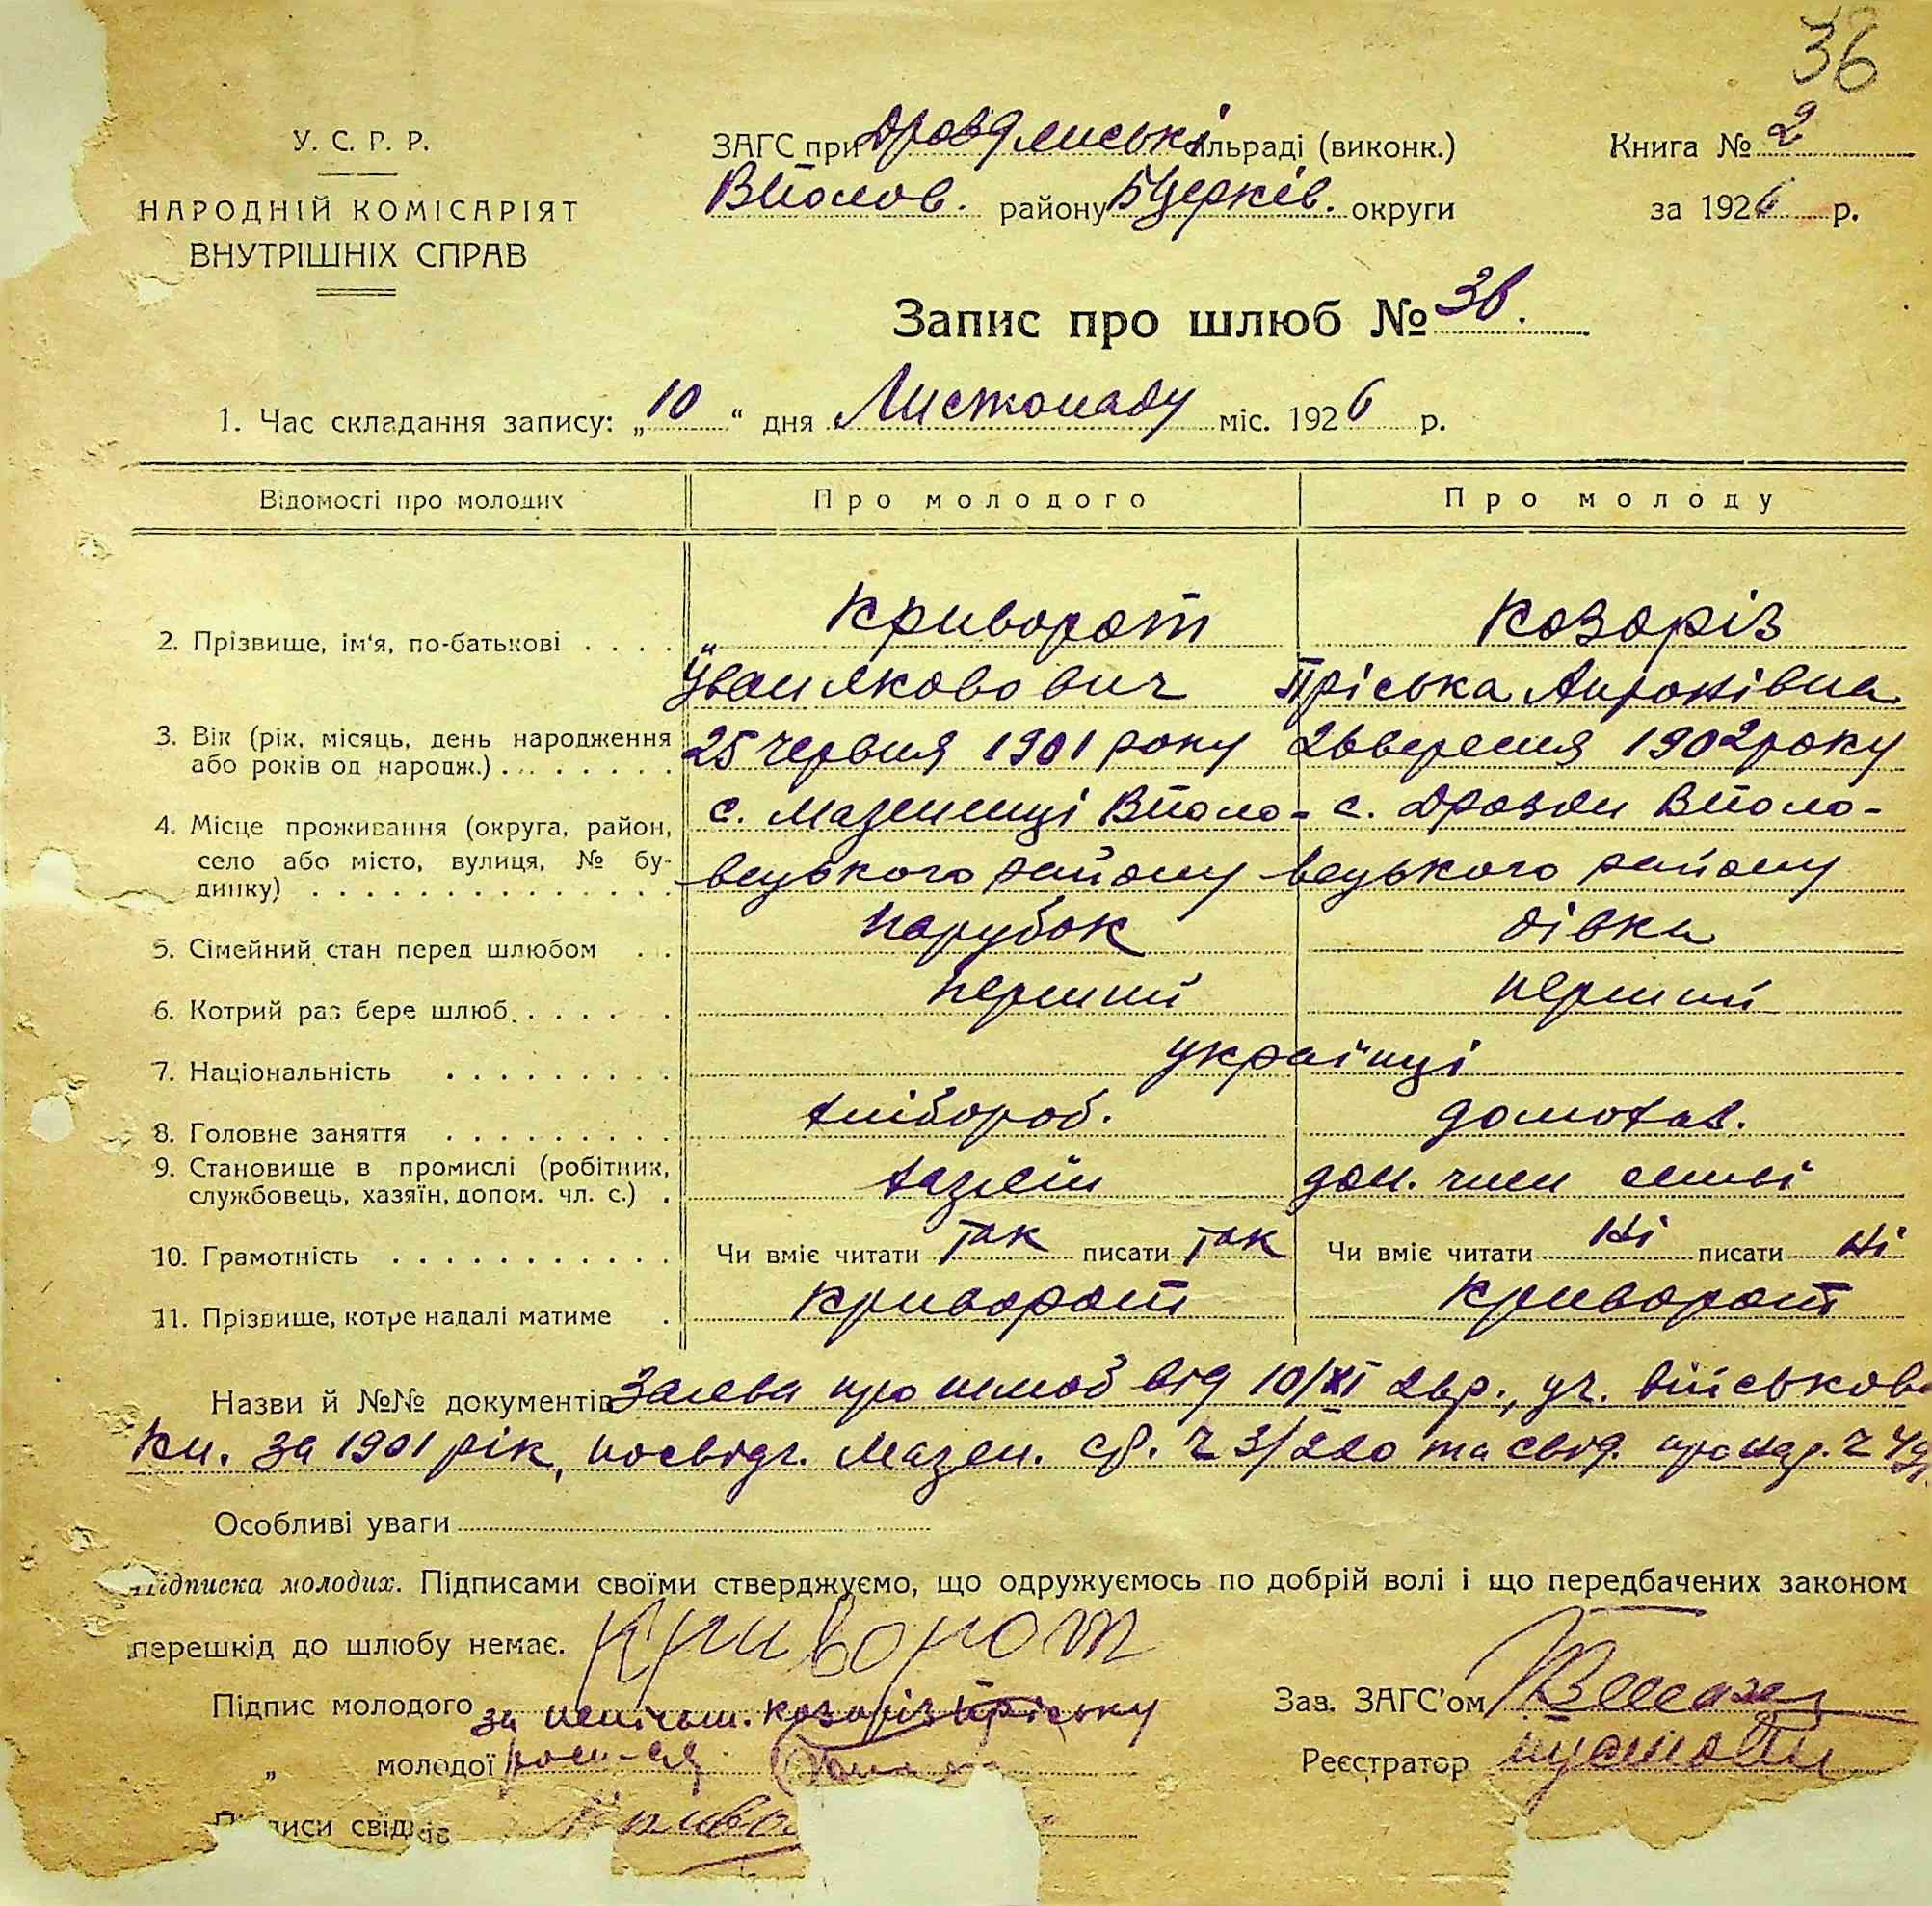 36
У. С. Р. Р.
НАРОДНІЙ КОМІСАРІЯТ
ВНУТРІШНІХ СПРАВ
ЗАГС при Дроздянській сільраді (виконк.)
Вполов. району БЦерків. округи
Книга № 2
за 1926 р.
Запис про шлюб № 36.
1. Час складання запису: „10“ дня Листопаду міс. 1926 р.
Відомості про молодих Про молодого Про молоду
2. Прізвище, ім'я, по-батькові . . . . Криворот Козоріз
Іван Якович Пріська
3. Вік (рік, місяць, день народження 25 червня 1901 року 26 вересня 1902 року
або років од народж.) . . . . . . .
4. Місце проживання (округа, район, с. Мазепинці Вполо- с. Дрозди Вполо-
село або місто, вулиця, № бу- вецького району вецького району
динку) . . . . . . . . . . . . . .
5. Сімейний стан перед шлюбом . . парубок дівка
6. Котрий раз бере шлюб . . . . . перший перший
7. Національність . . . . . . . . . українці
8. Головне заняття . . . . . . . . . хлібороб. домохаз.
9. Становище в промислі (робітник, хазяїн доп. член семьі
службовець, хазяїн, допом. чл. с.) .
10. Грамотність . . . . . . . . . . . Чи вміє читати так писати так Чи вміє читати ні писати ні
11. Прізвище, котре надалі матиме . Криворот Криворот
Назви й №№ документів Заява про шлюб від 10/XI 26р., уч. військов
кн. за 1901 рік, посвідч. Мазеп. ср. Ч 3/220 та свід. про нар. Ч
Особливі уваги
Підписка молодих. Підписами своїми стверджуємо, що одружуємось по добрій волі і що передбачених законом
перешкід до шлюбу немає. Криворот
Підпис молодого за неписьм. Козоріз Пріську
„ молодої
Зав. ЗАГС'ом
Реєстратор
Підписи свідків Криво